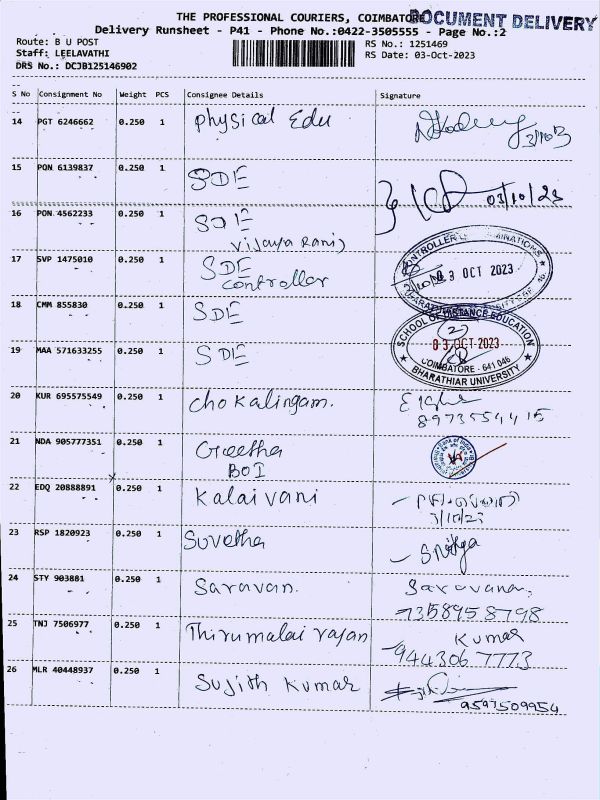 THE PROFESSIONAL COURIERS, COIMBATORE
DOCUMENT DELIVERY
Delivery Runsheet - P41 - Phone No.:0422-3505555 - Page No.:2
Route: B U POST
RS No.: 1251469
Staff: LEELAVATHI
RS Date: 03-Oct-2023
DRS No.: DCJB125146902
S No Consignment No Weight PCS Consignee Details Signature
14 PGT 6246662 0.250 1 Physical Edu
15 PON 6139837 0.250 1 SDE 03/10/23
16 PON 4562233 0.250 1 SDE
Vijaya Rani)
17 SVP 1475010 0.250 1 SDE
Controller
03 OCT 2023
18 CMM 855830 0.250 1 SDE
SCHOOL OF DISTANCE EDUCATION
(2)
03 OCT 2023
COIMBATORE - 641 046
BHARATHIAR UNIVERSITY
19 MAA 571633255 0.250 1 SDE
20 KUR 695575549 0.250 1 Chokalingam.
8973554415
21 NDA 905777351 0.250 1 Geetha
BOI
22 EDQ 20888891 0.250 1 Kalaivani
3/10/23
23 RSP 1820923 0.250 1 Suvetha
24 STY 903881 0.250 1 Saravan. Saravanan
7358958798
25 TNJ 7506977 0.250 1 Thirumalai rajan Kumar
9443067773
26 MLR 40448937 0.250 1 Sujith Kumar
9597509954